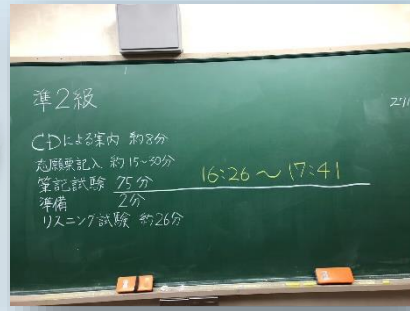 準2級
CDによる案内 約8分
志願票記入 約15~30分
筆記試験 75分 16:26~17:41
準備 2分
リスニング試験 約26分